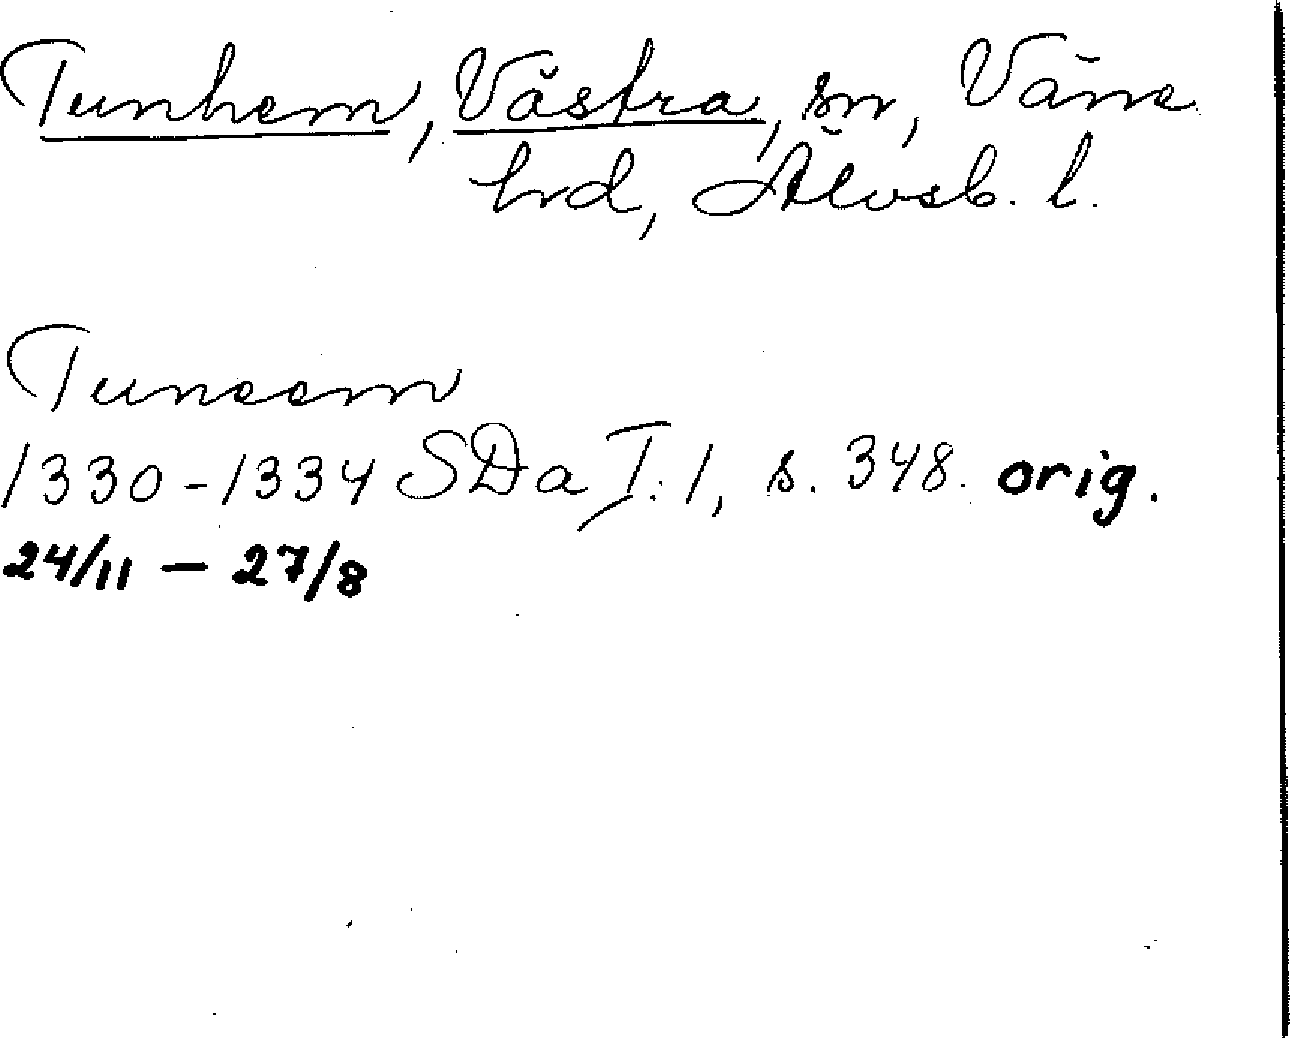 Tunhem, Västra, sn, Väne
hd, Älvsb. l.
Tuneem
1330-1334 SDa I:1, s. 348. orig.
24/11 – 27/8